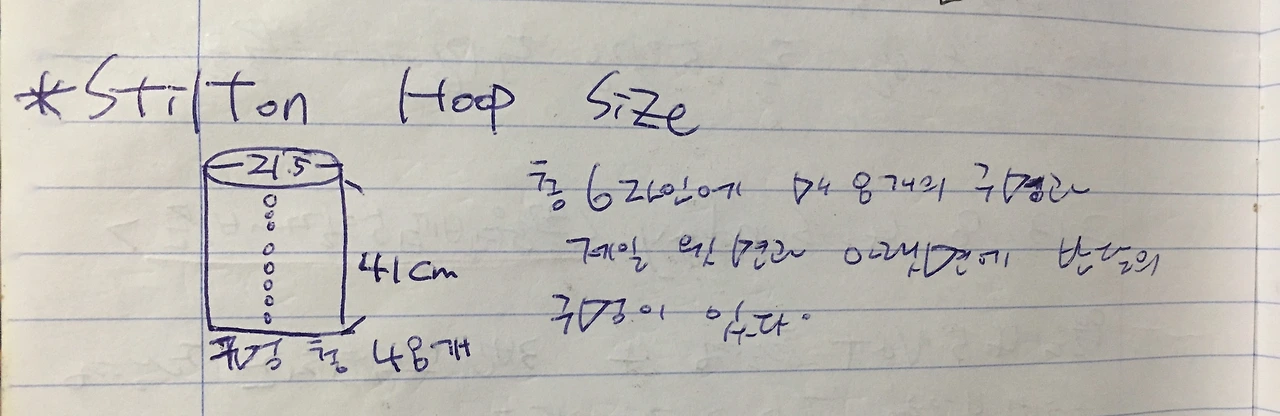 *Stilton Hoop Size
21.5
41cm
총 6라인에 매 8개의 구멍과
제일 윗면과 아랫면에 반드의
구멍이 있다.
구멍 총 48개